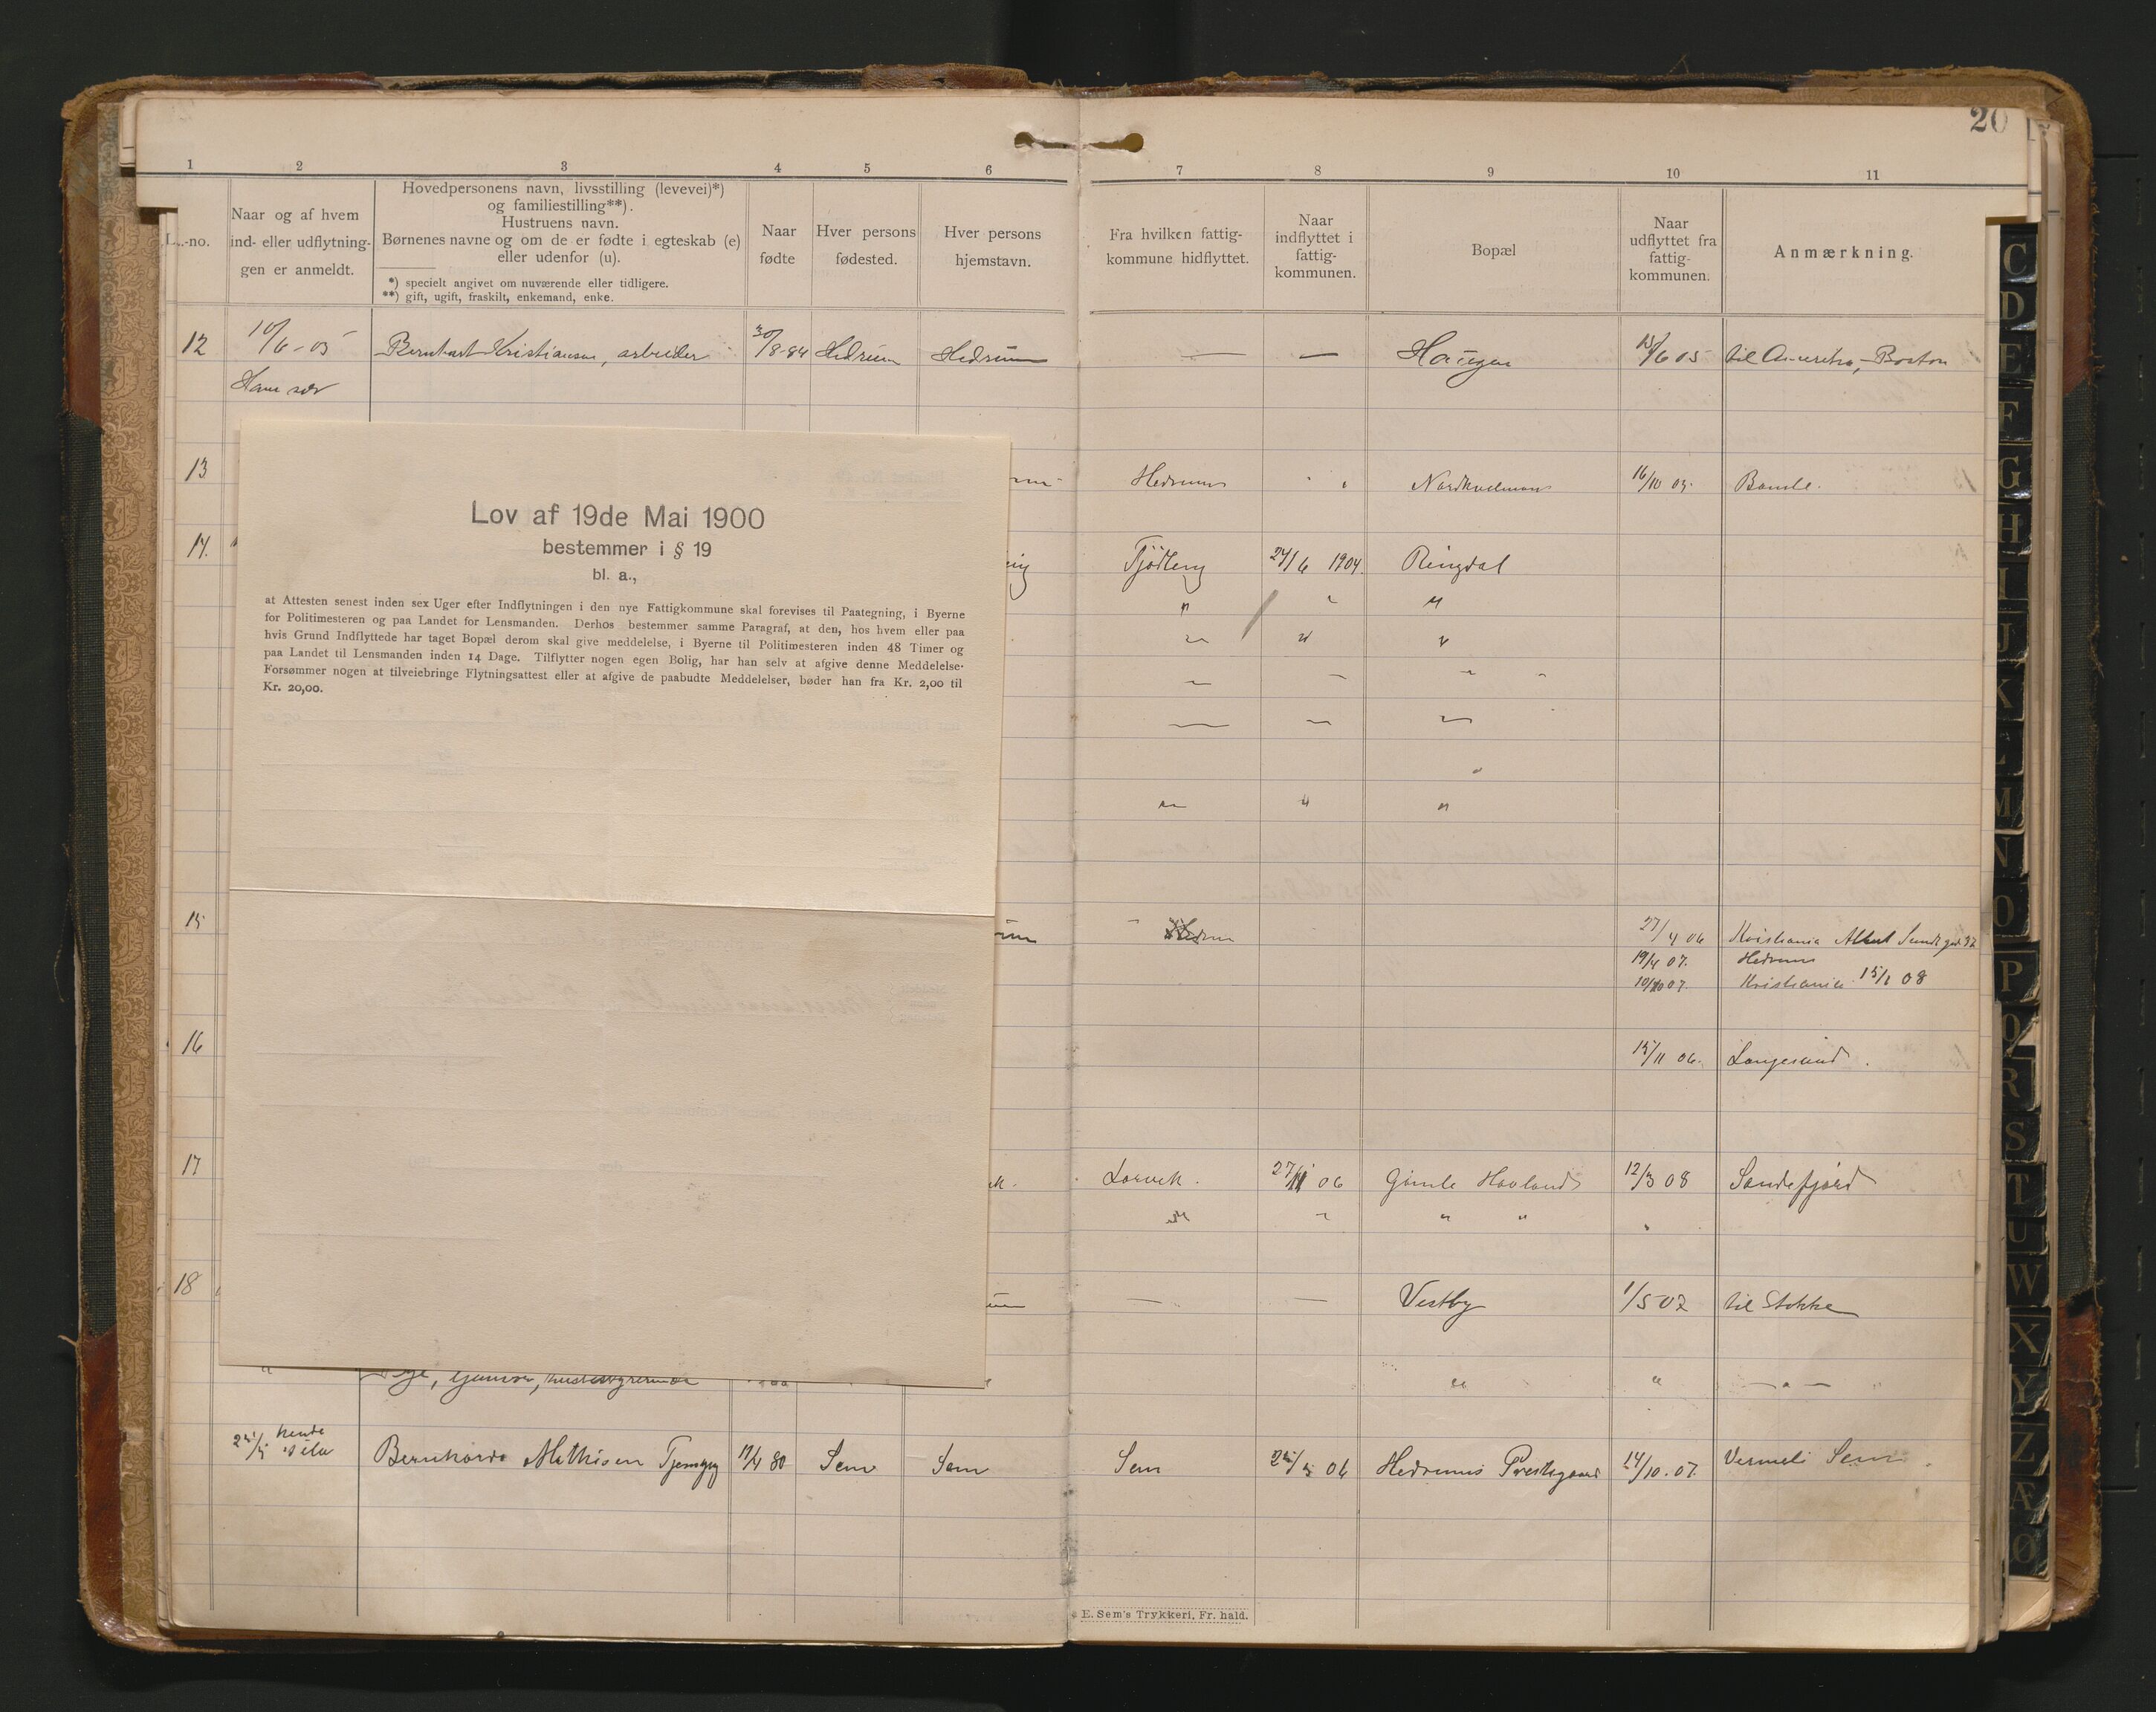 20
1 2 3 4 5 6 7 8 9 10 11
L.-no.
Naar og af hvem
ind- eller udflytnin-
gen er anmeldt.
Hovedpersonens navn, livsstilling (levevei)*)
og familiestilling**).
Hustruens navn.
Børnenes navne og om de er fødte i egteskab (e)
eller udenfor (u).
*) specielt angivet om nuværende eller tidligere.
**) gift, ugift, fraskilt, enkemand, enke.
Naar
fødte
Hver persons
fødested.
Hver persons
hjemstavn.
Fra hvilken fattig-
kommune hidflyttet.
Naar
indflyttet i
fattig-
kommunen.
Bopæl
Naar
udflyttet fra
fattig-
kommunen.
Anmærkning.
12 10/6-05 Bernhart Kristiansen, arbeider 30/8-84 Hedrum Hedrum — — Haugen 15/6 05 til Amerika, Boston
Ham selv
13 Hedrum " Nordkvelmen 16/10 05. Bamle.
Lov af 19de Mai 1900
bestemmer i § 19
bl. a.,
at Attesten senest inden sex Uger efter Indflytningen i den nye Fattigkommune skal forevises til Paategning, i Byerne
for Politimesteren og paa Landet for Lensmanden. Derhos bestemmer samme Paragraf, at den, hos hvem eller paa
hvis Grund Indflyttede har taget Bopæl derom skal give meddelelse, i Byerne til Politimesteren inden 48 Timer og
paa Landet til Lensmanden inden 14 Dage. Tilflytter nogen egen Bolig, har han selv at afgive denne Meddelelse.
Forsømmer nogen at tilveiebringe Flytningsattest eller at afgive de paabudte Meddelelser, bøder han fra Kr. 2,00 til
Kr. 20,00.
14. 24/6 1904. Ringdal
15 27/4 06 Kristiania Sundt gd 37
19/4 07. Hedrum
10/10 07. Kristiania 15/1 08
16 15/11 06. Langesund.
17 Larvik. 27/11 06 Gimle Havland 12/3 08 Sandefjord
" " " " "
18 — — Vestby 1/5 07 til Stokke
" " — " —
hende selv Bernharda Mathisen 17/4 80 Sem Sem Sem 06 Hedrums Prestegaard 14/10. 07. Vermeli Sem
E. Sem's Trykkeri, Fr. hald.
C
D
E
F
G
H
I
J
K
L
M
N
O
P
Q
R
S
T
U
W
X
Y
Z
Æ
Ø